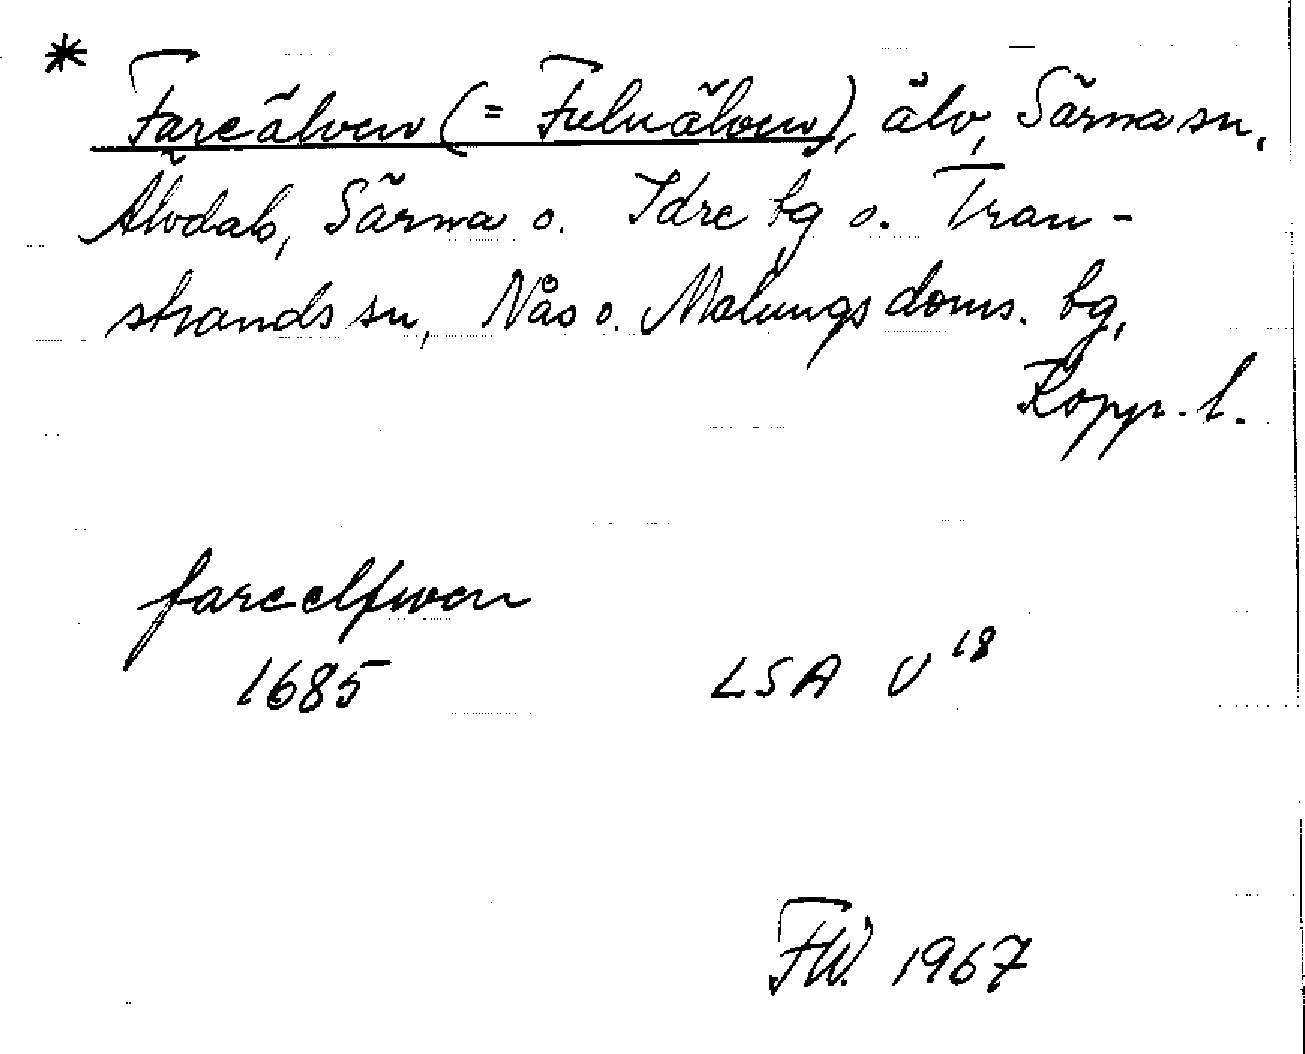 * Fareälven (= Fuluälven), älv, Särna sn,
Älvdals, Särna o. Idre tg o. Tran-
strands sn, Nås o. Malungs doms. tg,
Kopp. l.
fareelfwen
1685 LSA U 18
FW. 1967